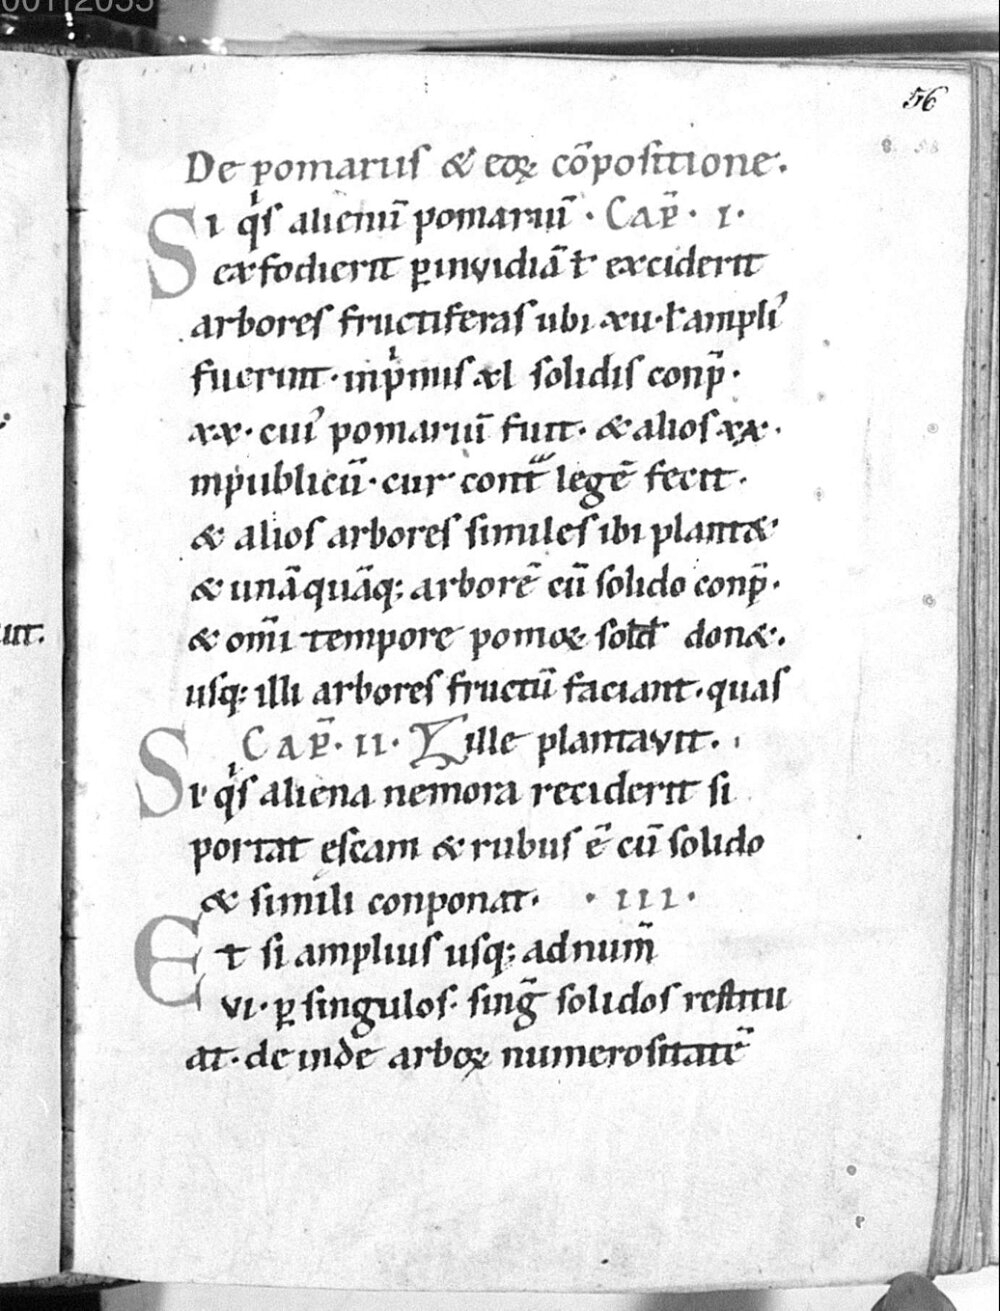 00112055
56
8. 58
De pomariis & eoꝝ cōpositione.
Si qͥs alienū pomariū · Cap̄ · I·
exfodierit ꝑinvidiā ł exciderit
arbores fructiferas ubi xii·ł ampliꝰ
fuerint·inpͥmis xl solidis conp̄·
xx·cuiꝰ pomariū fuit·&alios xx·
inpublicū·cur cont̄ legē fecit·
& alios arbores similes ibi plant&
&unāquāq; arborē cū solido conp̄·
& om̄i tempore pomoꝝ solđ don&.
usq; illi arbores fructū faciant·quas
Cap̄·II· ille plantavit.
Si qͥs aliena nemora reciderit si
portat ęscam & rubus ē cū solido
& simili conponat. · III·
Et si amplius usq; adnum̄
VI·ꝑ singulos· sinḡ solidos restitu
at·de inde arboꝝ numerositatē
ut.